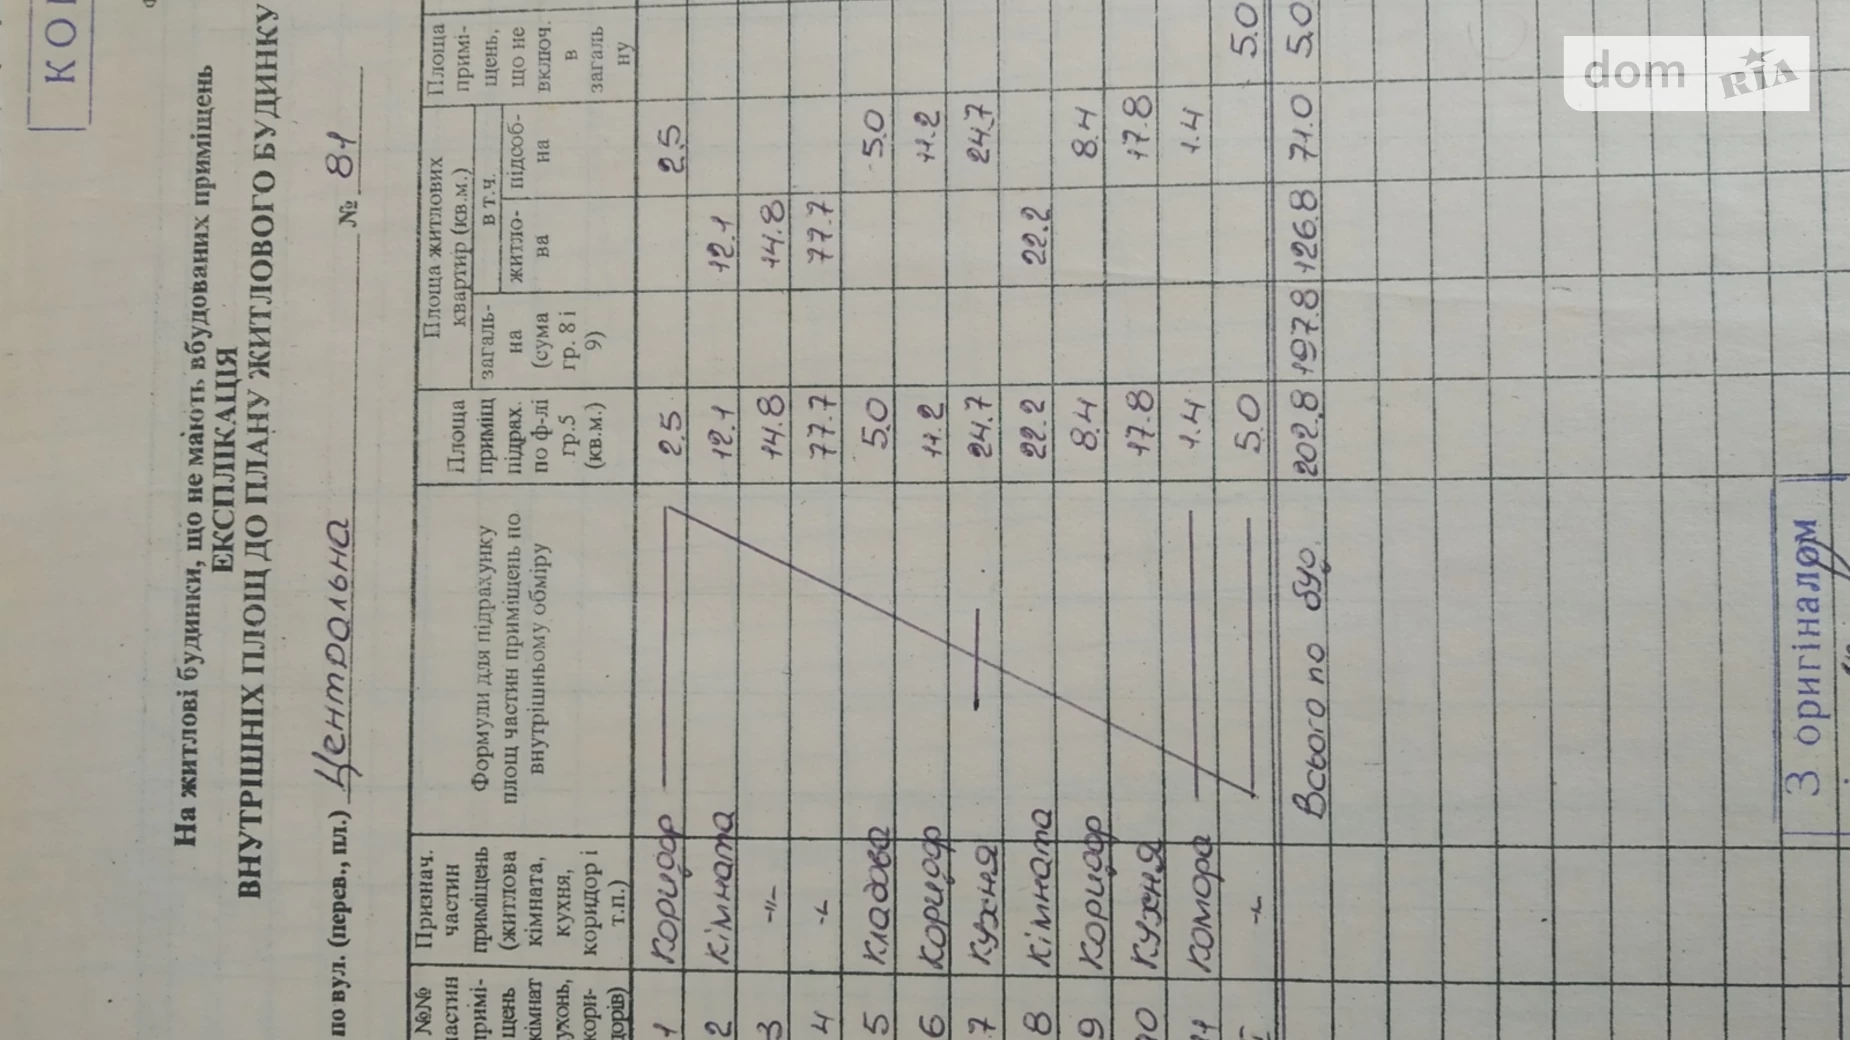 КОП
На житлові будинки, що не мають вбудованих приміщень
ЕКСПЛІКАЦІЯ
ВНУТРІШНІХ ПЛОЩ ДО ПЛАНУ ЖИТЛОВОГО БУДИНКУ
по вул. (перев., пл.) Центральна № 81
№№ частин примі- щень кімнат кухонь, кори- дорів)
Признач. частин приміщень (житлова кімната, кухня, коридор і т.п.)
Формули для підрахунку площ частин приміщень по внутрішньому обміру
Площа приміщ підрах. по ф-лі гр.5 (кв.м.)
Площа житлових квартир (кв.м.)
загаль- на (сума гр. 8 і 9)
в т.ч.
житло- ва
підсоб- на
Площа примі- щень, що не включ. в загаль ну
1 коридор 2.5 2.5
2 кімната 12.1 12.1
3 -"- 14.8 14.8
4 -"- 77.7 77.7
5 кладова 5.0 5.0
6 коридор 11.2 11.2
7 кухня 24.7 24.7
8 кімната 22.2 22.2
9 коридор 8.4 8.4
10 кухня 17.8 17.8
11 комора 1.4 1.4
І -"- 5.0 5.0
Всього по буд. 202.8 197.8 126.8 71.0 5.0
З оригіналом
dom RIA